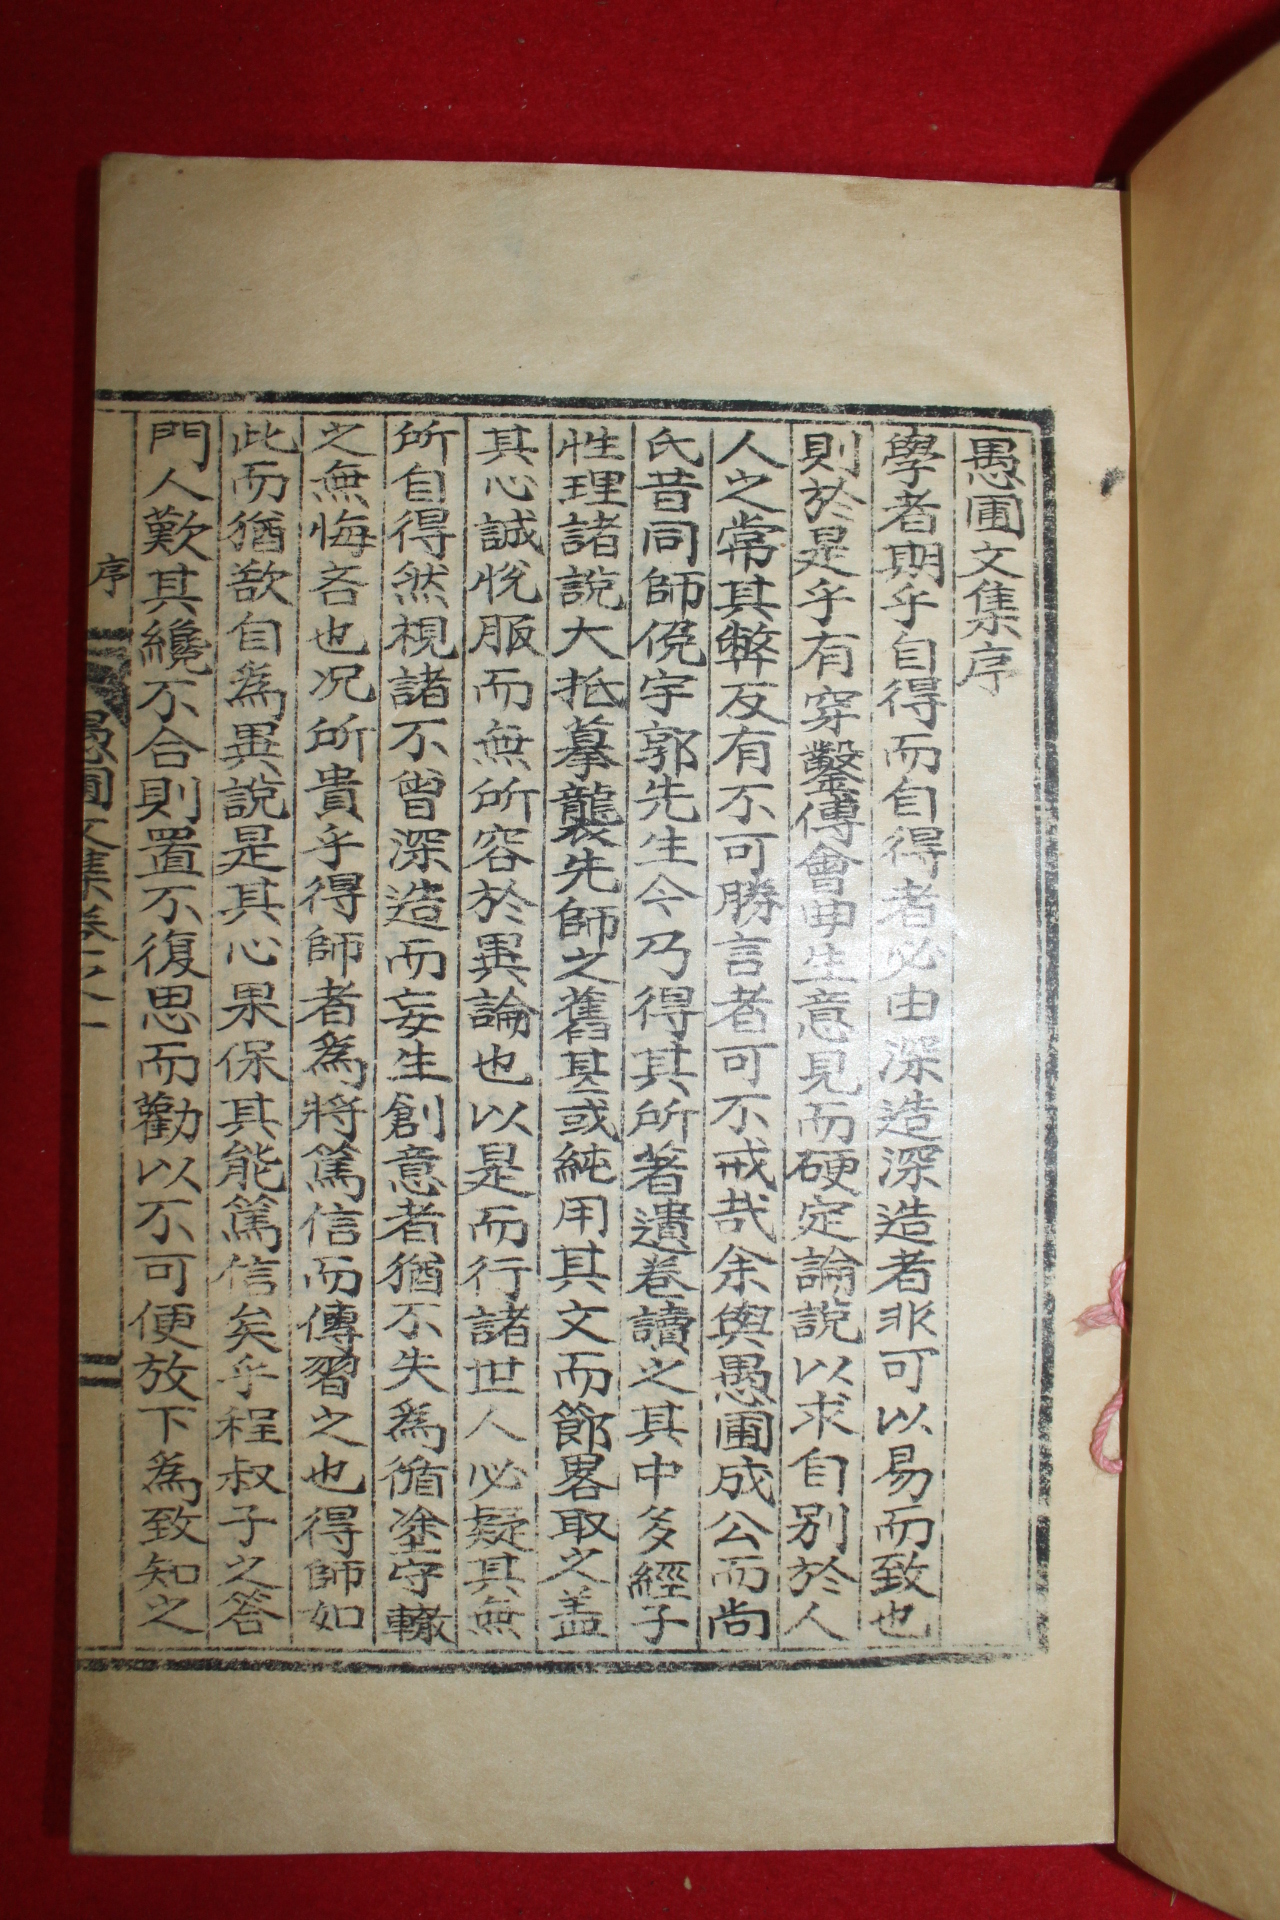 愚圃文集序
學者期乎自得而自得者必由深造深造者非可以易而致也
則於是乎有穿鑿傅會曲生意見而硬定論說以求自別於人
人之常其弊反有不可勝言者可不戒哉余與愚圃成公而尚
氏昔同師俛宇郭先生今乃得其所著遺卷讀之其中多經子
性理諸說大抵摹襲先師之舊甚或純用其文而節畧取之盖
其心誠悅服而無所容於異論也以是而行諸世人必疑其無
所自得然視諸不曾深造而妄生創意者猶不失爲循塗守轍
之無悔吝也况所貴乎得師者爲將篤信而傳習之也得師如
此而猶欲自爲異說是其心果保其能篤信矣乎程叔子之答
門人歎其纔不合則置不復思而勸以不可便放下為致知之
序
愚圃文集卷之一